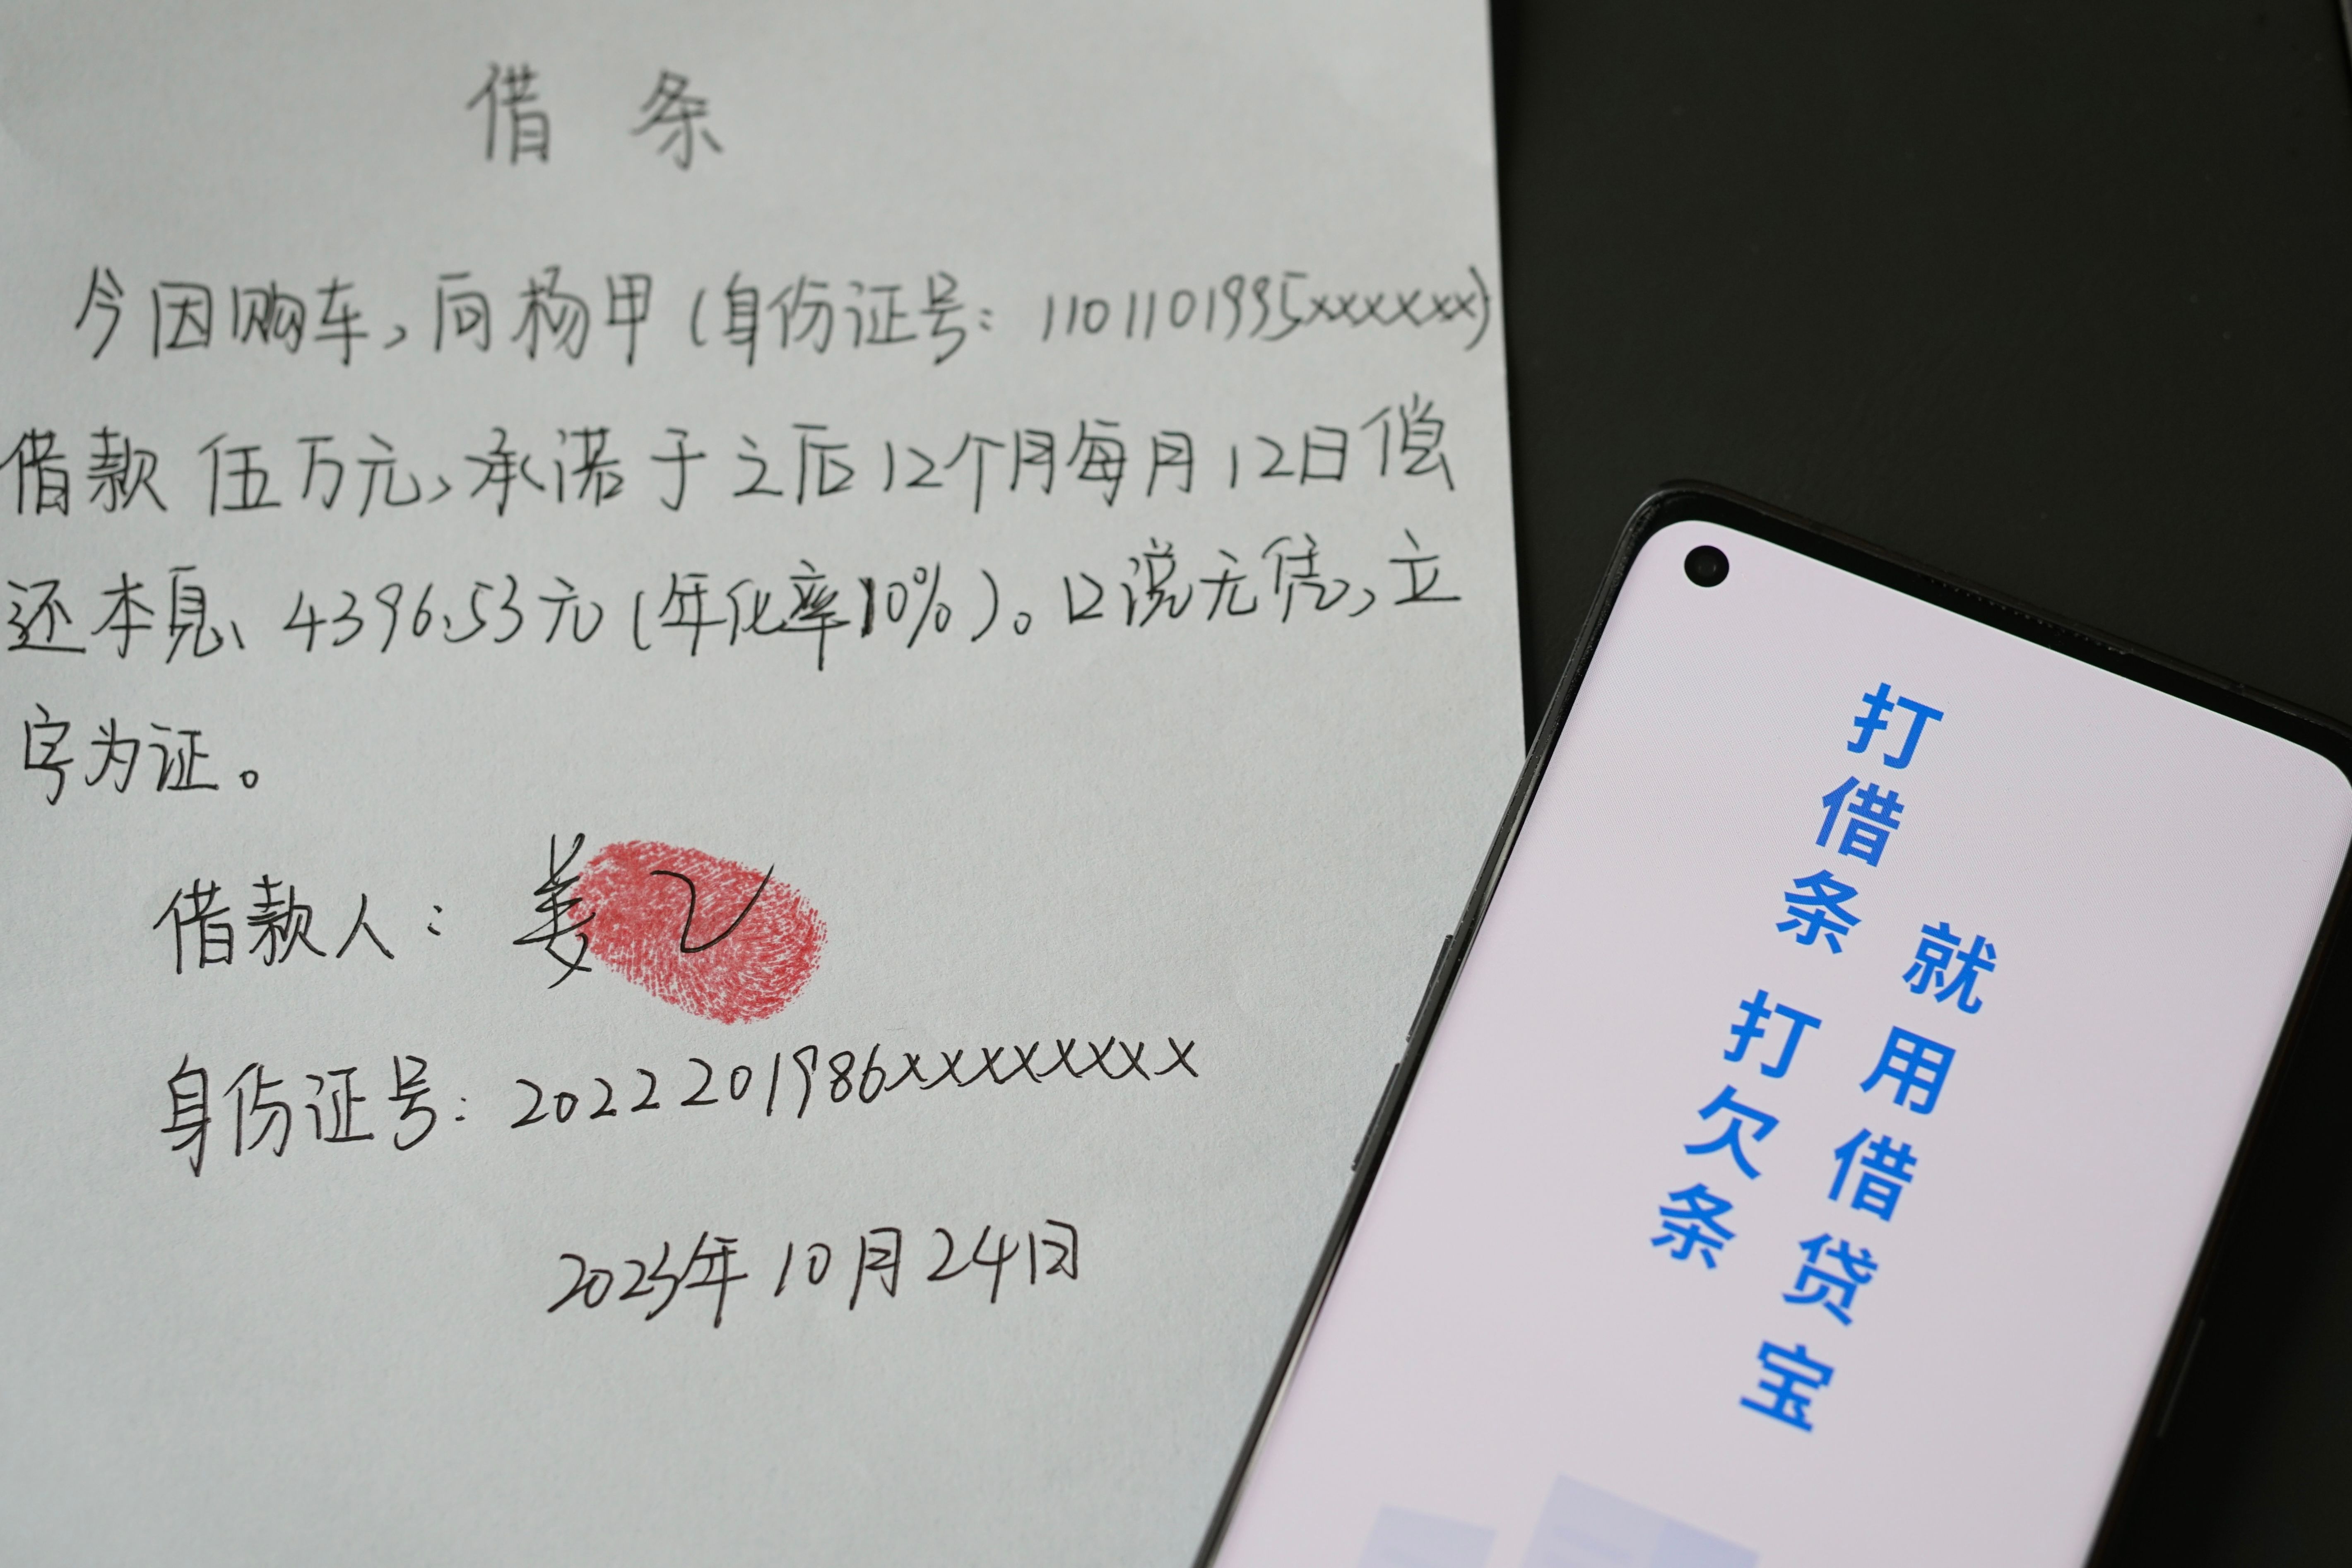 借条
今因购车，向杨甲（身份证号：1101101995xxxxxx）
借款伍万元，承诺于之后12个月每月12日偿
还本息、4396.53元（年化率10%）。口说无凭，立
字为证。
借款人：姜乙
身份证号：2022201986xxxxxxxx
2023年10月24日
打借条 打欠条
就用借贷宝